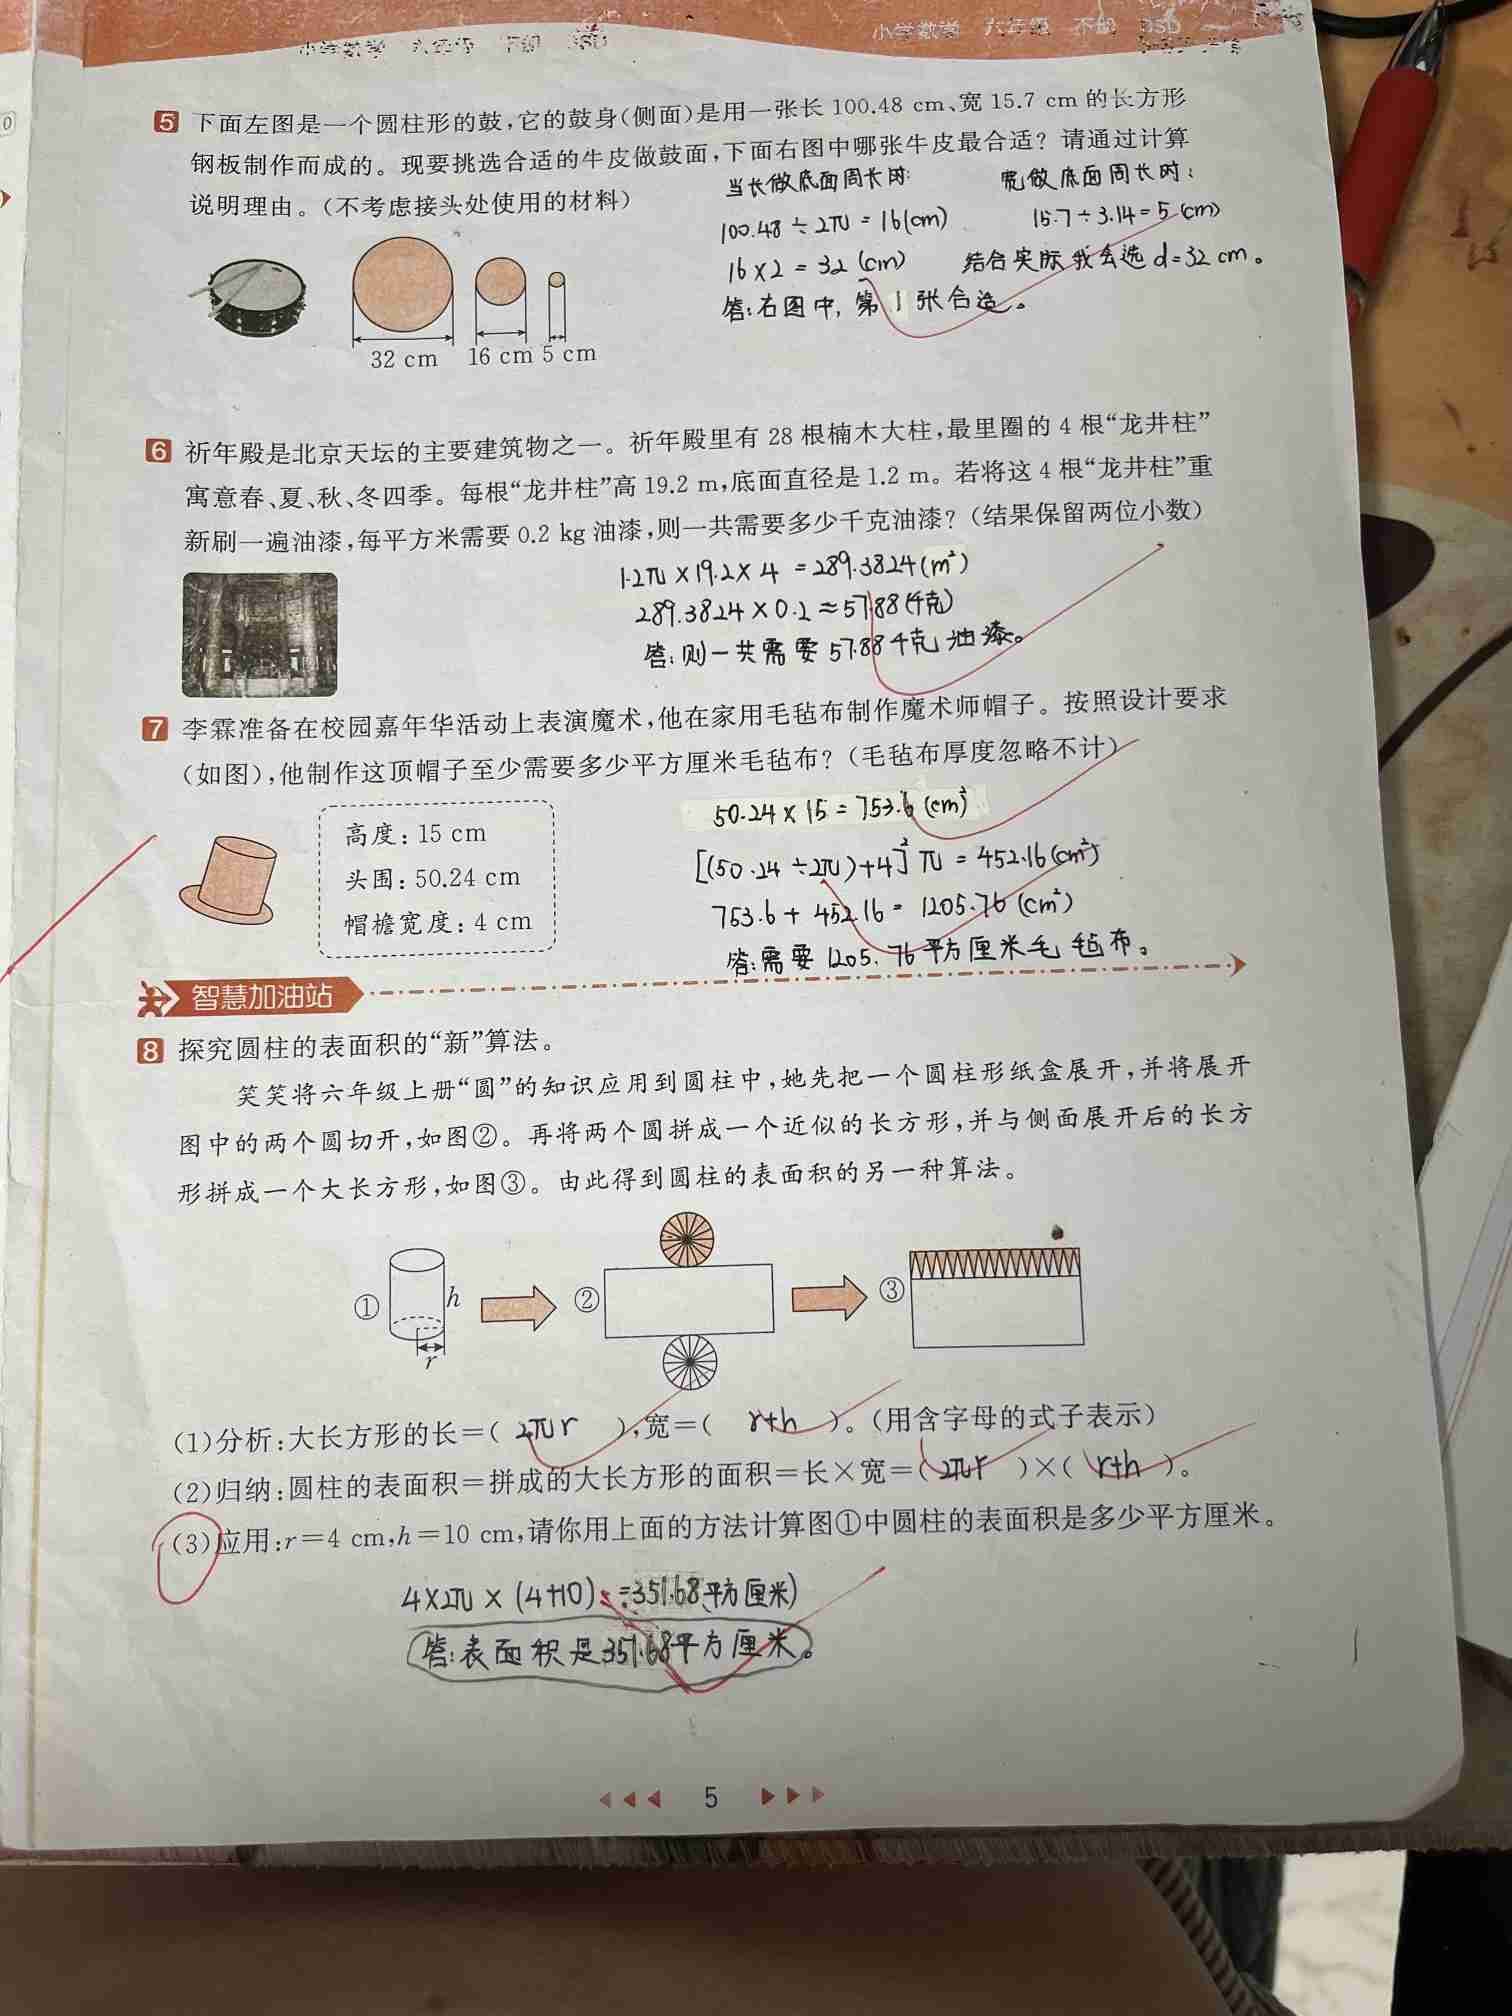 小学数学 六年级 下册 BSD
小学数学 六年级 下册 BSD
5 下面左图是一个圆柱形的鼓,它的鼓身(侧面)是用一张长 100.48 cm、宽 15.7 cm 的长方形
钢板制作而成的。现要挑选合适的牛皮做鼓面,下面右图中哪张牛皮最合适?请通过计算
说明理由。(不考虑接头处使用的材料)
当长做底面周长时:
宽做底面周长时:
100.48÷2π=16(cm)
15.7÷3.14=5(cm)
16×2=32(cm)
结合实际我会选d=32cm。
答:右图中,第1张合适。
32 cm 16 cm 5 cm
6 祈年殿是北京天坛的主要建筑物之一。祈年殿里有 28 根楠木大柱,最里圈的 4 根“龙井柱”
寓意春、夏、秋、冬四季。每根“龙井柱”高 19.2 m,底面直径是 1.2 m。若将这 4 根“龙井柱”重
新刷一遍油漆,每平方米需要 0.2 kg 油漆,则一共需要多少千克油漆?(结果保留两位小数)
1.2π×19.2×4=289.3824(m²)
289.3824×0.2≈57.88(千克)
答:则一共需要57.88千克油漆。
7 李霖准备在校园嘉年华活动上表演魔术,他在家用毛毡布制作魔术师帽子。按照设计要求
(如图),他制作这顶帽子至少需要多少平方厘米毛毡布?(毛毡布厚度忽略不计)
高度:15 cm
头围:50.24 cm
帽檐宽度:4 cm
50.24×15=753.6(cm²)
[(50.24÷2π)+4]²π=452.16(cm²)
753.6+452.16=1205.76(cm²)
答:需要1205.76平方厘米毛毡布。
智慧加油站
8 探究圆柱的表面积的“新”算法。
笑笑将六年级上册“圆”的知识应用到圆柱中,她先把一个圆柱形纸盒展开,并将展开
图中的两个圆切开,如图②。再将两个圆拼成一个近似的长方形,并与侧面展开后的长方
形拼成一个大长方形,如图③。由此得到圆柱的表面积的另一种算法。
① h r ② ③
(1)分析:大长方形的长=( 2πr ),宽=( r+h )。(用含字母的式子表示)
(2)归纳:圆柱的表面积=拼成的大长方形的面积=长×宽=( 2πr )×( r+h )。
(3)应用:r=4 cm,h=10 cm,请你用上面的方法计算图①中圆柱的表面积是多少平方厘米。
4×2π×(4+10)=351.68平方厘米)
答:表面积是351.68平方厘米。
5